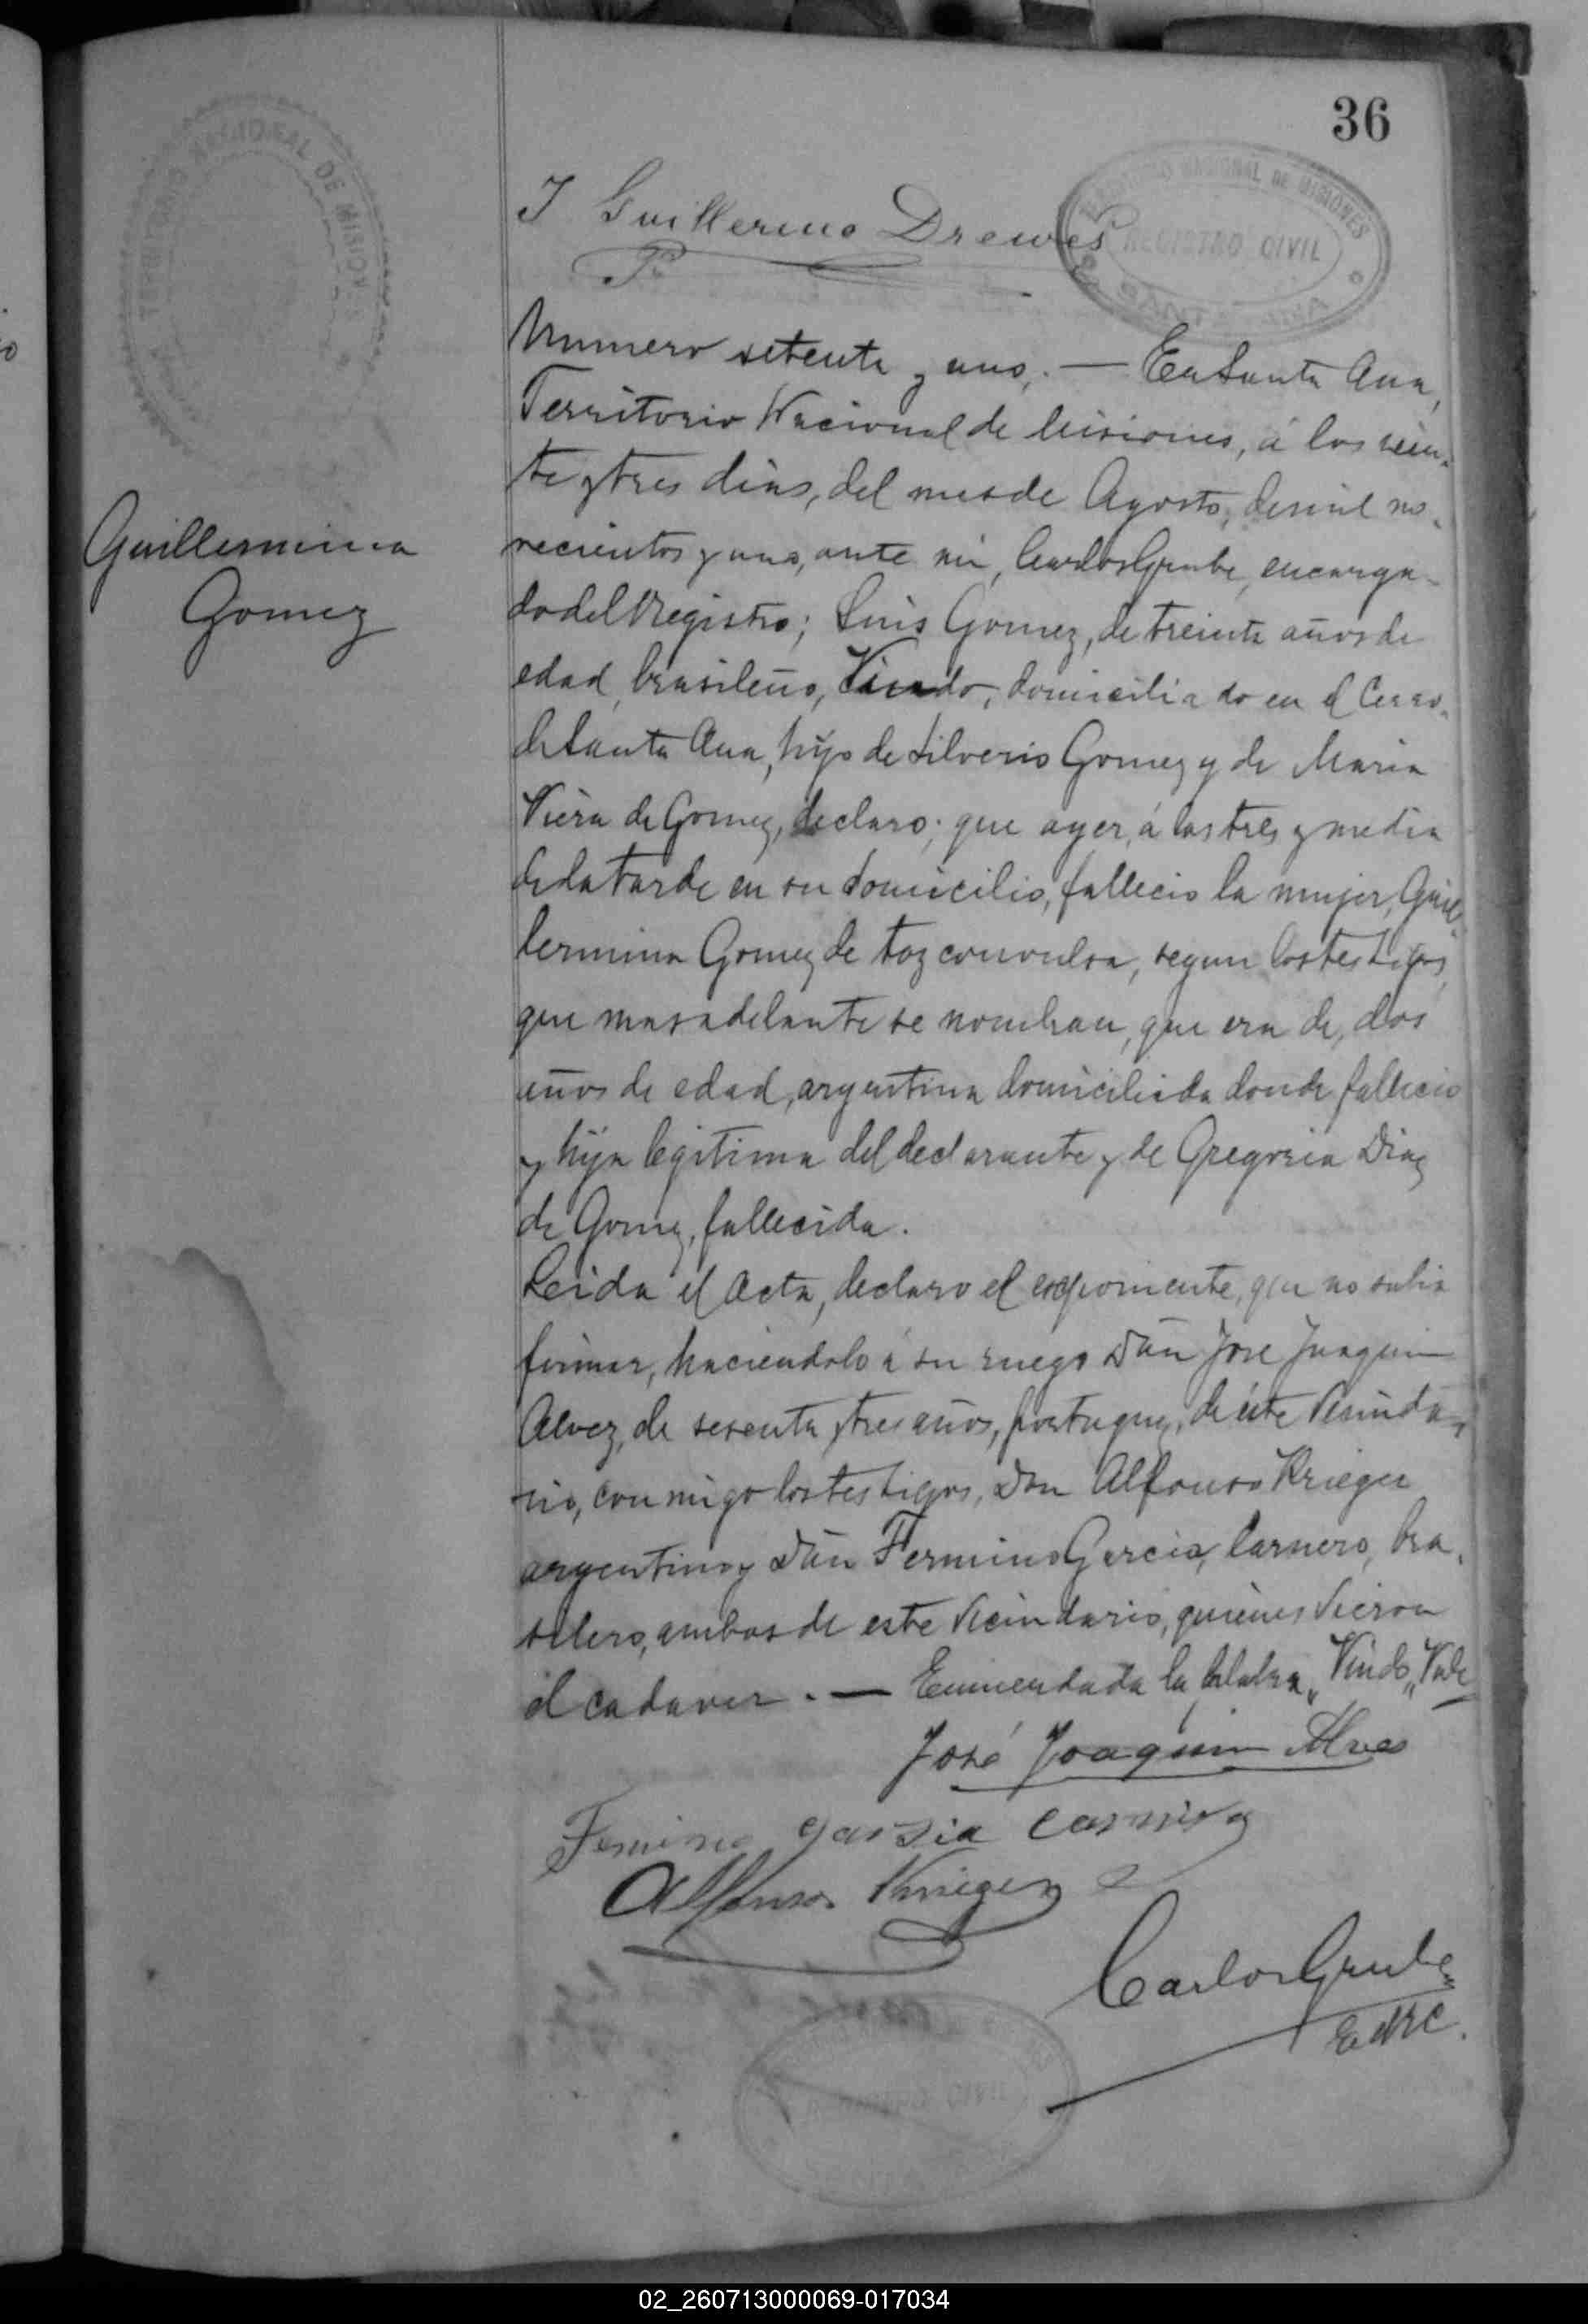 36
TERRITORIO NACIONAL DE MISIONES
REGISTRO CIVIL
SANTA ANA
J Guillermo Drewes
Numero setenta y uno. — En Santa Ana,
Territorio Nacional de Misiones, á los vein-
te y tres dias, del mes de Agosto, de mil no-
vecientos y uno, ante mi, Carlos Grube, encarga-
do del Registro; Luis Gomez, de treinta años de
edad, brasileño, Viudo, domiciliado en el Cerro
de Santa Ana, hijo de Silverio Gomez y de Maria
Viera de Gomez, declaro; que ayer, á las tres y media
de la tarde en su domicilio, fallecio la mujer, Guil-
lermina Gomez de toz convulsa, segun los testigos,
que mas adelante se nombran, que era de, dos
años de edad, argentina domiciliada donde fallecio
y hija legitima del declarante y de Gregoria Diaz
de Gomez, fallecida.
Leida el Acta, declaro el exponiente, que no sabia
firmar, haciendolo á su ruego Dün Jose Juaquin
Alvez, de sesenta y tres años, portuguez, de éste Vesinda-
rio, con migo los testigos, Don Alfonso Krieger
argentino y Dün Fermino Garcia, Carnero, bra-
silero, ambos de este Vecindario, quienes Vieron
el cadaver. — Enmendada la palabra „Viudo„ Vale
Guillermina
Gomez
José Joaquim Alves
Fermino garsia
Alfonso Krieger
Carlos Grube
E d R C.
TERRITORIO NACIONAL DE MISIONES
REGISTRO CIVIL
02_260713000069-017034